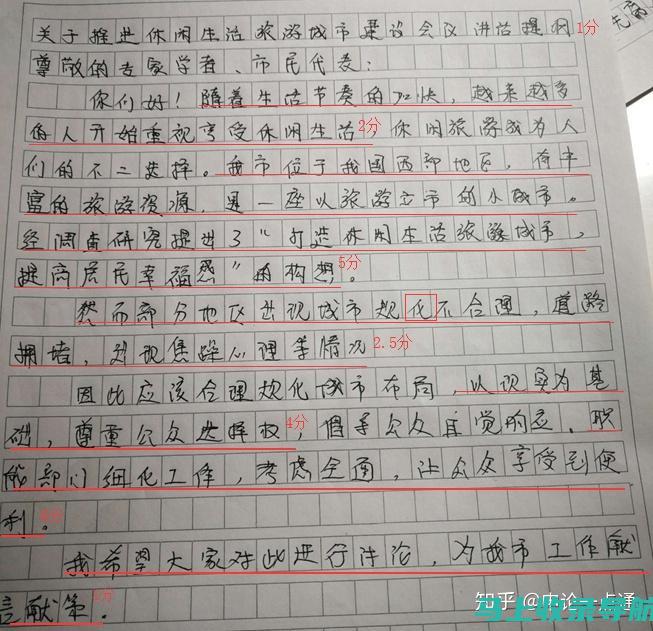 关于推进休闲生活旅游城市建设会议讲话提纲1分
尊敬的专家学者、市民代表：
你们好！随着生活节奏的加快，越来越多
的人开始重视享受休闲生活2分休闲旅游成为人
们的不二选择。我市位于我国西部地区，有丰
富的旅游资源，是一座以旅游立市的小城市。
经调查研究提出了“打造休闲生活旅游城市，
提高居民幸福感”的构想。5分
然而部分地区出现城市规化不合理，道路
拥堵，出现集聚心理等情况2.5分
因此应该合理规化城市布局，以现实为基
础，尊重公众选择权4分，倡导公众自觉响应。职
能部门细化工作，考虑全面，让公众享受到便
利。
我希望大家对此进行讨论，为我市工作献
言献策。
知乎
马上收录导航